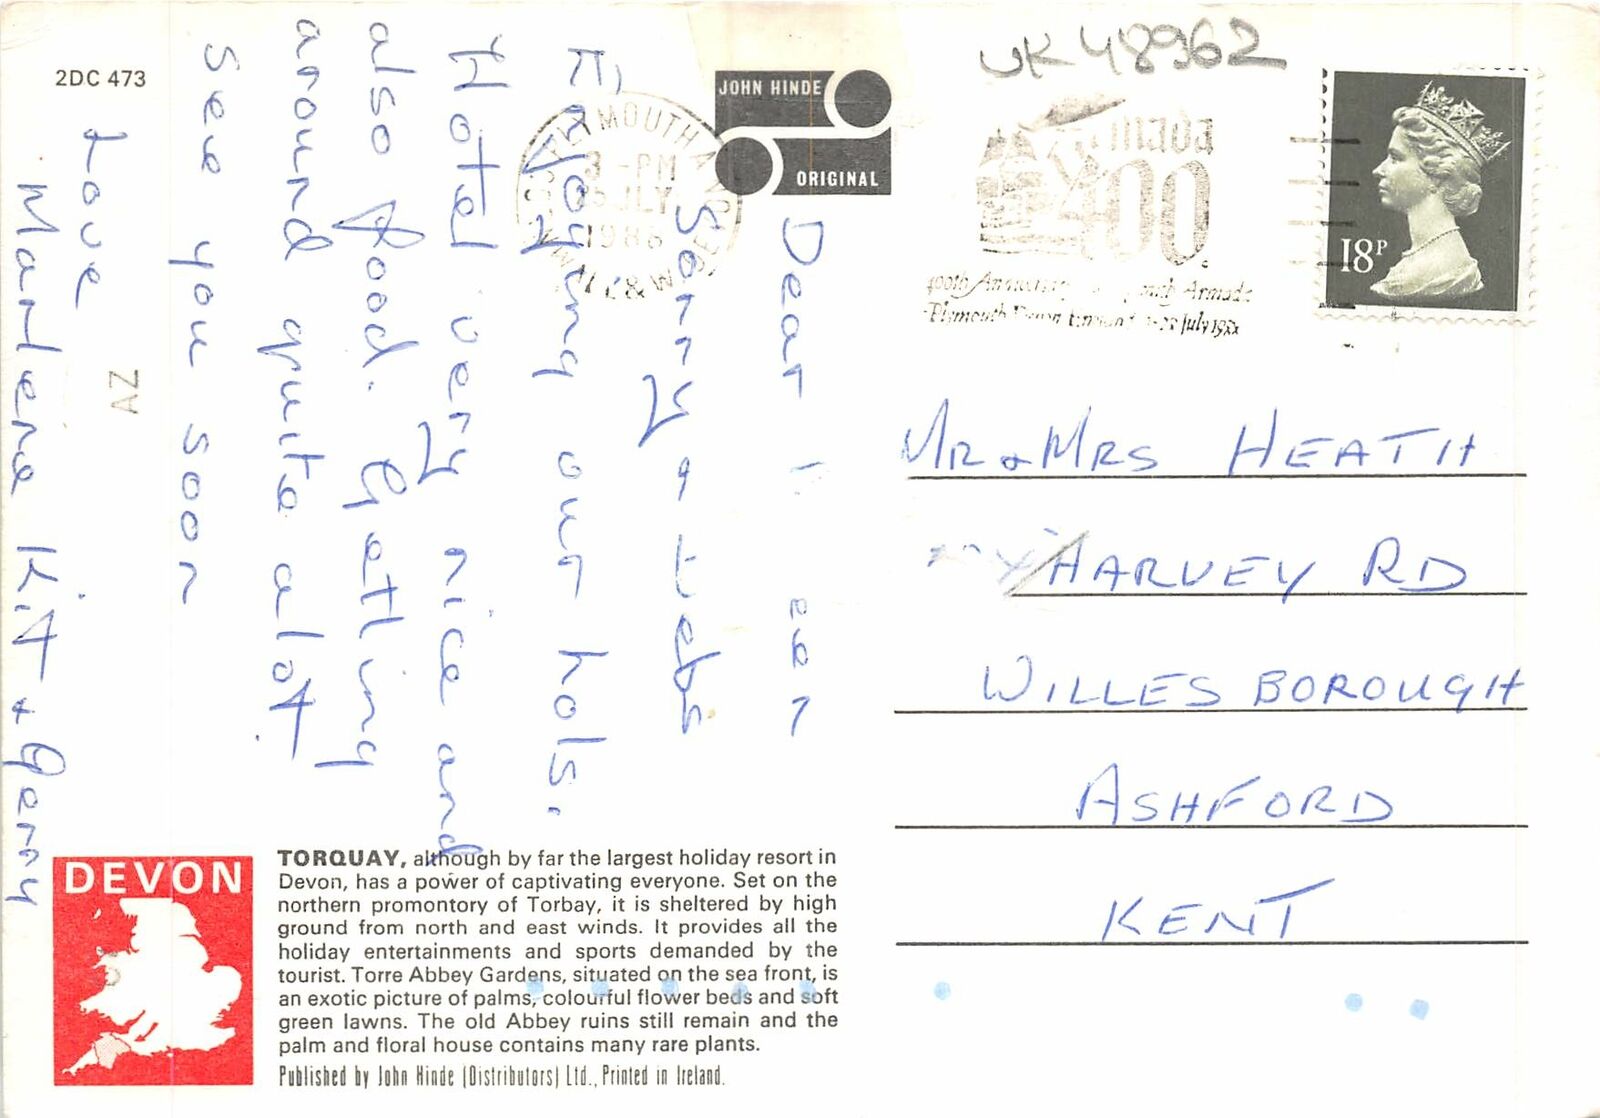 2DC 473
JOHN HINDE
ORIGINAL
UK 48962
PLYMOUTH
3 - PM
JULY
400
18P
Dear
Sorry
Enjoying our hols.
Hotel very nice and
also food. Getting
around quite alot
See you soon
Love
Marlene Kit + Gerry
AZ
MR & MRS HEATH
HARVEY RD
WILLES BOROUGH
ASHFORD
KENT
DEVON
TORQUAY, although by far the largest holiday resort in
Devon, has a power of captivating everyone. Set on the
northern promontory of Torbay, it is sheltered by high
ground from north and east winds. It provides all the
holiday entertainments and sports demanded by the
tourist. Torre Abbey Gardens, situated on the sea front, is
an exotic picture of palms, colourful flower beds and soft
green lawns. The old Abbey ruins still remain and the
palm and floral house contains many rare plants.
Published by John Hinde (Distributors) Ltd., Printed in Ireland.